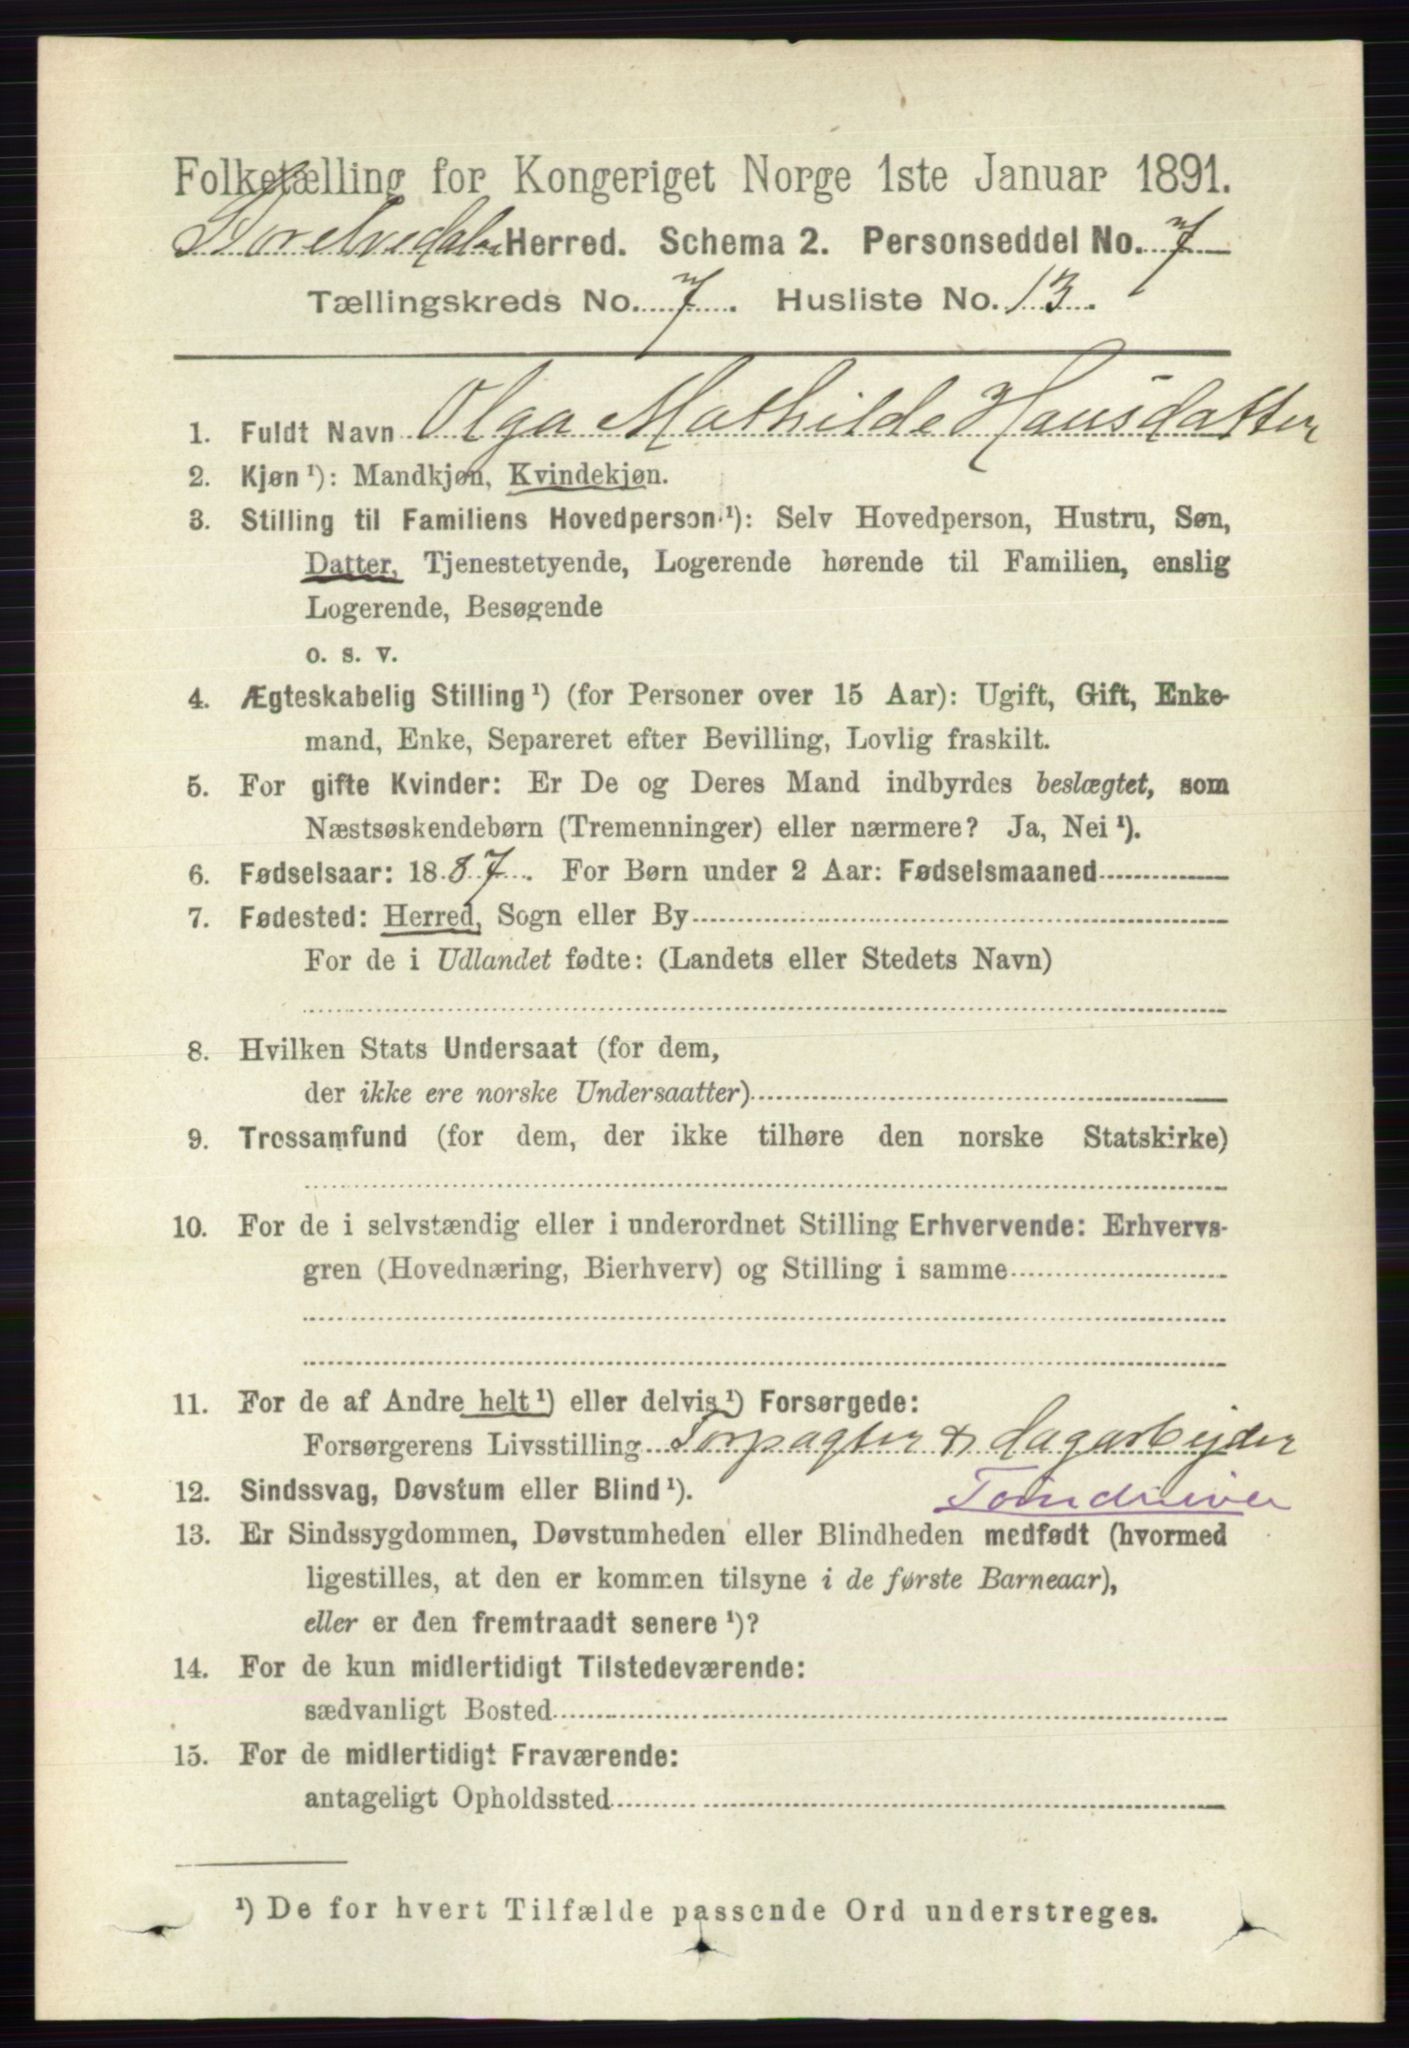 Folketælling for Kongeriget Norge 1ste Januar 1891.
Storelvedalen Herred. Schema 2. Personseddel No. 7
Tællingskreds No. 7. Husliste No. 13.
1. Fuldt Navn Olga Mathilde Hansdatter
2. Kjøn ¹): Mandkjøn, Kvindekjøn.
3. Stilling til Familiens Hovedperson ¹): Selv Hovedperson, Hustru, Søn,
Datter, Tjenestetyende, Logerende hørende til Familien, enslig
Logerende, Besøgende
o. s. v.
4. Ægteskabelig Stilling ¹) (for Personer over 15 Aar): Ugift, Gift, Enke-
mand, Enke, Separeret efter Bevilling, Lovlig fraskilt.
5. For gifte Kvinder: Er De og Deres Mand indbyrdes beslægtet, som
Næstsøskendebørn (Tremenninger) eller nærmere? Ja, Nei ¹).
6. Fødselsaar: 1887. For Børn under 2 Aar: Fødselsmaaned
7. Fødested: Herred, Sogn eller By
For de i Udlandet fødte: (Landets eller Stedets Navn)
8. Hvilken Stats Undersaat (for dem,
der ikke ere norske Undersaatter)
9. Trossamfund (for dem, der ikke tilhøre den norske Statskirke)
10. For de i selvstændig eller i underordnet Stilling Erhvervende: Erhvervs-
gren (Hovednæring, Bierhverv) og Stilling i samme
11. For de af Andre helt ¹) eller delvis ¹) Forsørgede:
Forsørgerens Livsstilling Forpagter & dagarbejder
12. Sindssvag, Døvstum eller Blind ¹). Tømdriver
13. Er Sindssygdommen, Døvstumheden eller Blindheden medfødt (hvormed
ligestilles, at den er kommen tilsyne i de første Barneaar),
eller er den fremtraadt senere ¹)?
14. For de kun midlertidigt Tilstedeværende:
sædvanligt Bosted
15. For de midlertidigt Fraværende:
antageligt Opholdssted
¹) De for hvert Tilfælde passende Ord understreges.